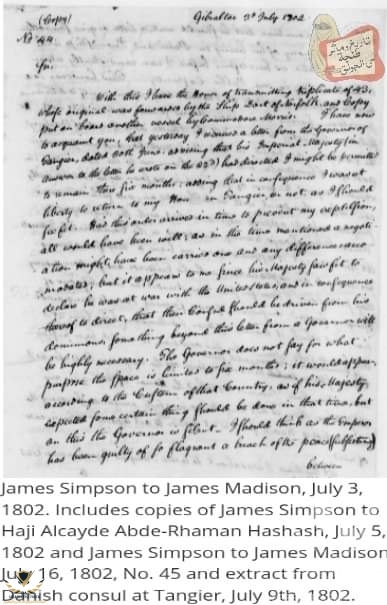 (Copy)
Gibraltar 3d July 1802.
No 44
Sir,
With this I have the honor of transmitting triplicate of 43,
whose original was forwarded by the Ship Dart of Norfolk and Copy
put on board another vessel by Commodore Morris. I have now
to acquaint you, that yesterday I received a letter from the Governor of
Tangier, dated 26th June, advising that his Imperial Majesty (in
answer to the letter he wrote on the 22d) had directed I might be permitted
to remain there six months; adding that in consequence I was at
liberty to return to my House in Tangier, or not, as I should
see fit. Had this order arrived in time to prevent my expulsion,
all would have been well; as in the time mentioned a negoti-
ation might have been carried on and any differences acco-
modated; but it appears to me since his Majesty saw fit to
declare he was at war with the United States, and in consequence
thereof to direct, that their Consul should be driven from his
dominions, something beyond this letter from a Governor will
be highly necessary. The Governor does not say for what
purpose the space is limited to six months; it would appear
according to the Custom of that Country, as if his Majesty
expected some certain thing should be done in that time, but
on this the Governor is silent. I should think as the Emperor
has been guilty of so flagrant a breach of the peace (subsisting)
between
تاريخ و مآثر
طنجة
James Simpson to James Madison, July 3,
1802. Includes copies of James Simpson to
Haji Alcayde Abde-Rhaman Hashash, July 5,
1802 and James Simpson to James Madison
July 16, 1802, No. 45 and extract from
Danish consul at Tangier, July 9th, 1802.